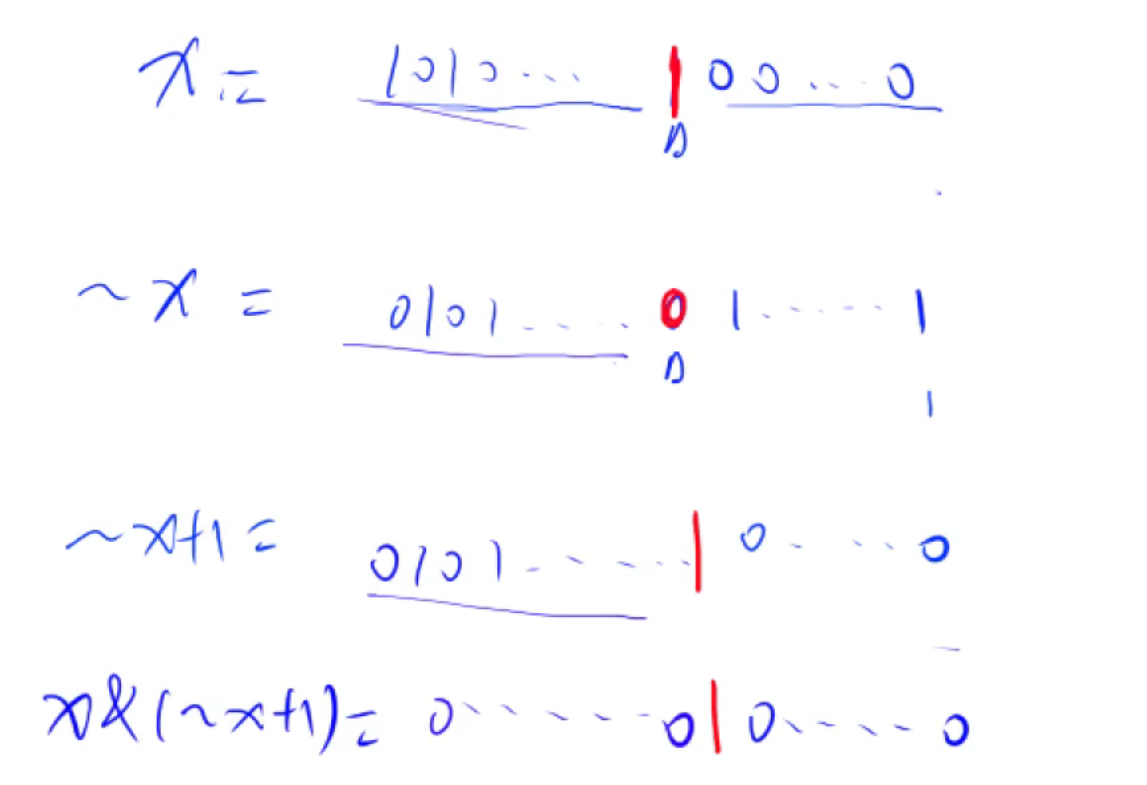 x = 1010... 1 00...0
~x = 0101.... 0 1.....1
1
~x+1 = 0101......1 0....0
x&(~x+1) = 0......010....0